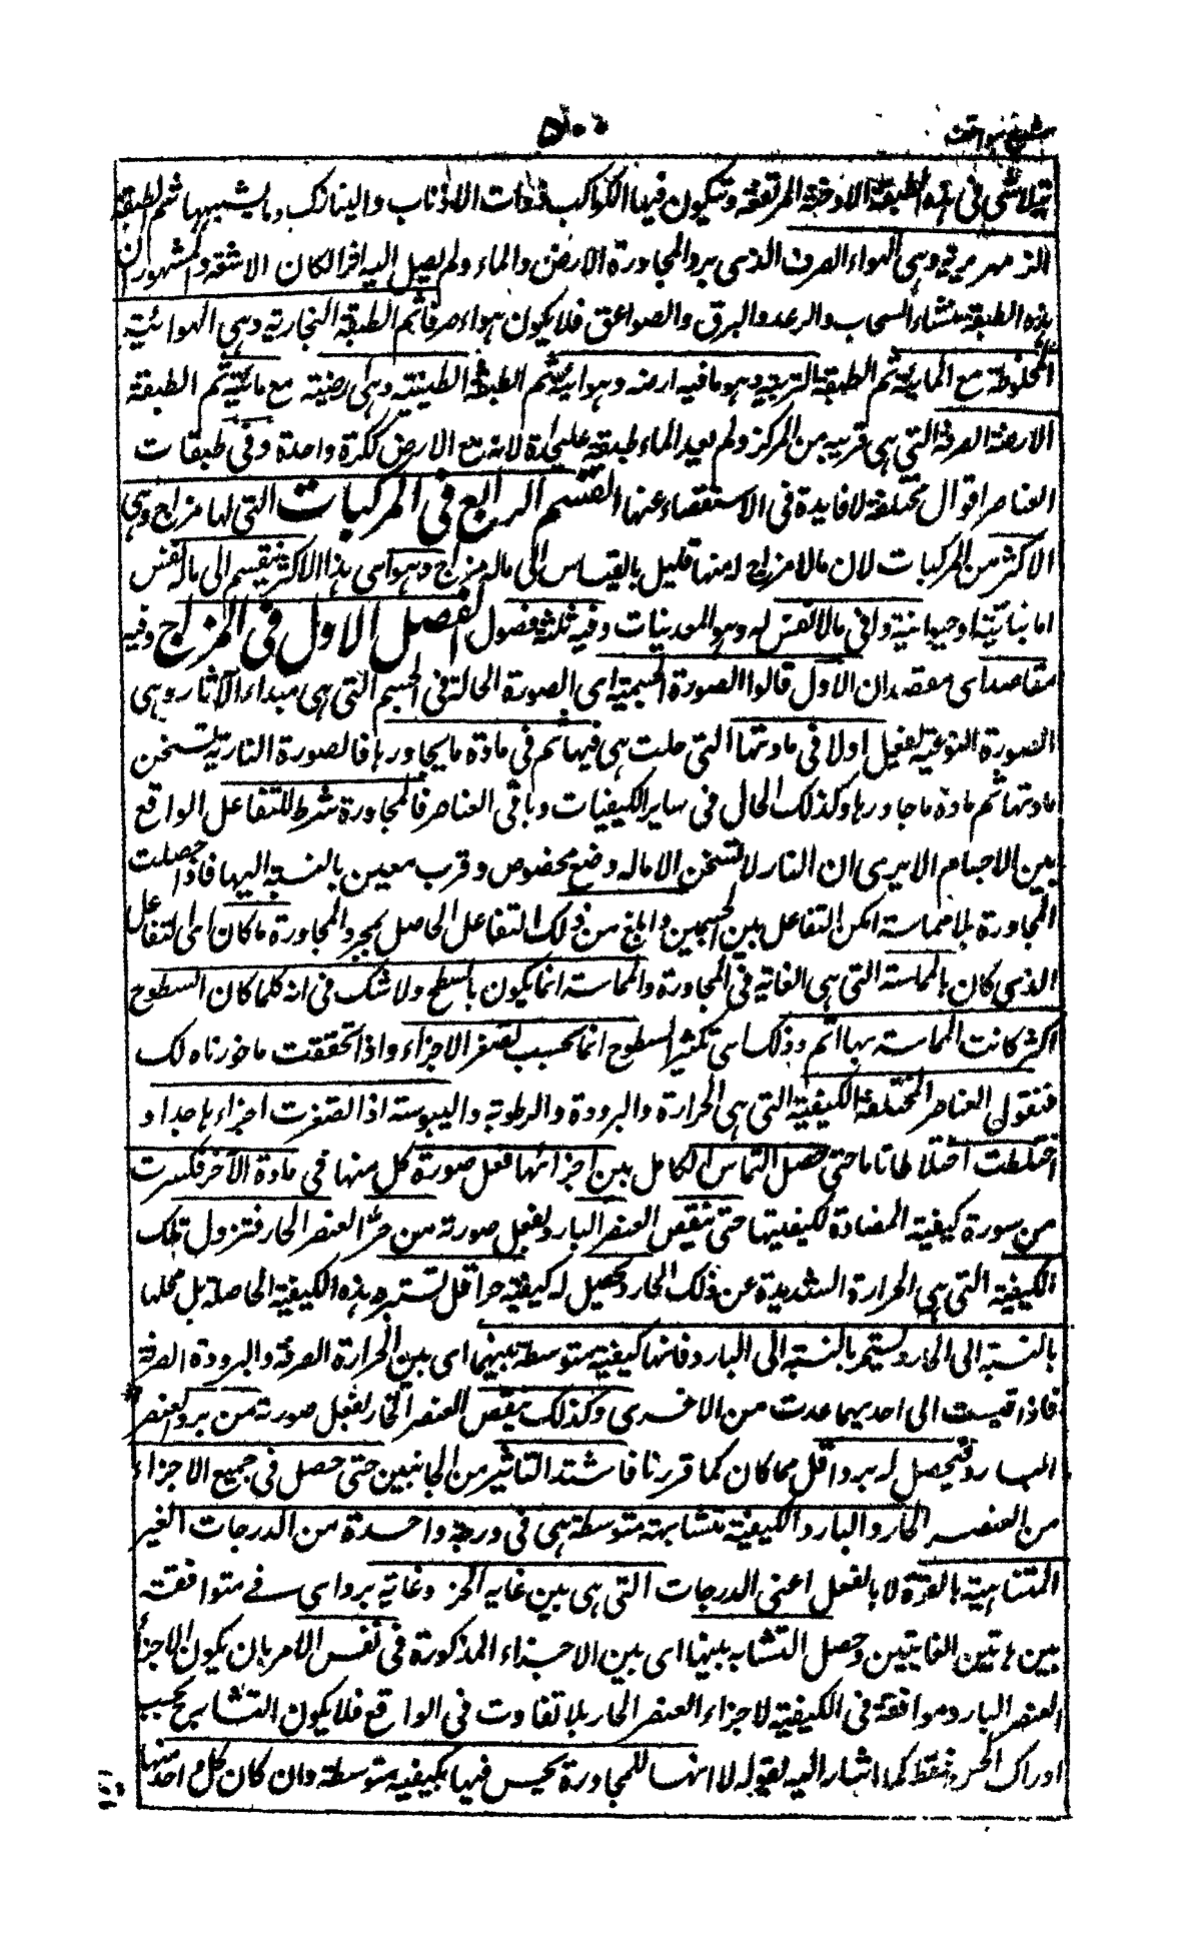 شرح مواقف
٥٠٠
يتلاشى فى هذه الطبقة الادخنة المرتفعة وتتكون فيها الكواكب ذوات الاذناب والنيازك وما يشبهها ثم الطبقة
الزمهريرية وهى الهواء الصرف الذى يبرد المجاورة الارض والماء ولم يصل اليه اثر الكان الاشعة والمشهور ان
هذه الطبقة منشاء السحاب والرعد والبرق والصواعق فلا يكون هواء صرفا ثم الطبقة البخارية وهى الهوائية
المخلوطة مع المائية ثم الطبقة التربية وهو ما فيه ارضه وهوائية ثم الطبقة الطينيته وهى ارضية مع مائية ثم الطبقة
الارضة الصرفة التى هى قريبه من المركز ولم يعد الماء طبقه عليحدة لانه مع الارض ككرة واحدة وفى طبقات
العناصر اقوال مختلفة لا فايدة فى الاستقصاء عنها القسم الرابع فى المركبات التى لها مزاج وهى
الاكثر من المركبات لان مالا مزاج له منها قليل بالقياس الى ماله مزاج وهو اى هذا الاكثر ينقسم الى ماله نفس
اما نباتية او حيوانية والى مالا نفس له وهو المعدنيات وفيه ثلثة فصول الفصل الاول فى المزاج وفيه
مقاصد اى مقصدان الاول قالوا الصورة الجسمية اى الصورة الحالة فى الجسم التى هى مبداء الآثار وهى
الصورة النوعية تفعل اولا فى مادتها التى حلت هى فيها ثم فى مادة ما يجاورها فالصورة النارية تسخن
مادتها ثم مادة ما جاورها وكذلك الحال فى سائر الكيفيات وباقى العناصر فالمجاورة شرط للتفاعل الواقع
بين الاجسام الا يرى ان النار لا تسخن الا ماله وضع مخصوص وقرب معين بالنسبة اليها فاذا حصلت
المجاورة بلا مماسة امكن التفاعل بين الجسمين وابلغ من ذلك التفاعل الحاصل بمجرد المجاورة ما كان اى التفاعل
الذى كان بالمماسة التى هى الغاية فى المجاورة والمماسة انما يكون بالسطح ولا شك فى انه كلما كان السطوح
اكثر كانت المماسة بها اتم وذلك اى تكثير السطوح انما بحسب تصغر الاجزاء واذا تحققت ما حررناه لك
فنقول العناصر المختلفة الكيفية التى هى الحرارة والبرودة والرطوبة واليبوسة اذا تصغرت اجزاءها جدا و
اختلطت اختلاطا تاما حتى حصل التماس الكامل بين اجزائها فعل صورة كل منها فى مادة الآخر فكسرت
من سورة كيفية المضادة لكيفيتها حتى ينقص العنصر البارد بفعل صورته من حر العنصر الحار فتزول تلك
الكيفية التى هى الحرارة الشديدة عن ذلك الحار ويحصل له كيفية حر اقل تستبرد هذه الكيفية الحاصلة بل محلها
بالنسبة الى الحار ويستحر بالنسبة الى البارد فانها كيفية متوسطة بينهما اى بين الحرارة الصرفة والبرودة الصرفة
فاذا قيست الى احديهما عدت من الاخرى وكذلك ينقص العنصر الحار بفعل صورته من برد العنصر
البارد فيحصل له برد اقل مما كان كما قررنا فاشتد التاثير من الجانبين حتى حصل فى جميع الاجزاء
من العنصر الحار والبارد الكيفية متشابهة متوسطة هى فى درجة واحدة من الدرجات الغير
المتناهية بالقوة لا بالفعل اعنى الدرجات التى هى بين غاية الحر وغاية برد اى فى متوافقة
بين هاتين الغايتين وحصل التشابه بينها اى بين الاجزاء المذكورة فى نفس الامر بان يكون الاجزاء
العنصر البارد موافقة فى الكيفية لاجزاء العنصر الحار بلا تفاوت فى الواقع فلا يكون التشابه بحسب
ادراك الحس فقط كما اشار اليه بقوله لا انها للمجاورة يحس فيها بكيفية متوسطة وان كان كل واحد منها